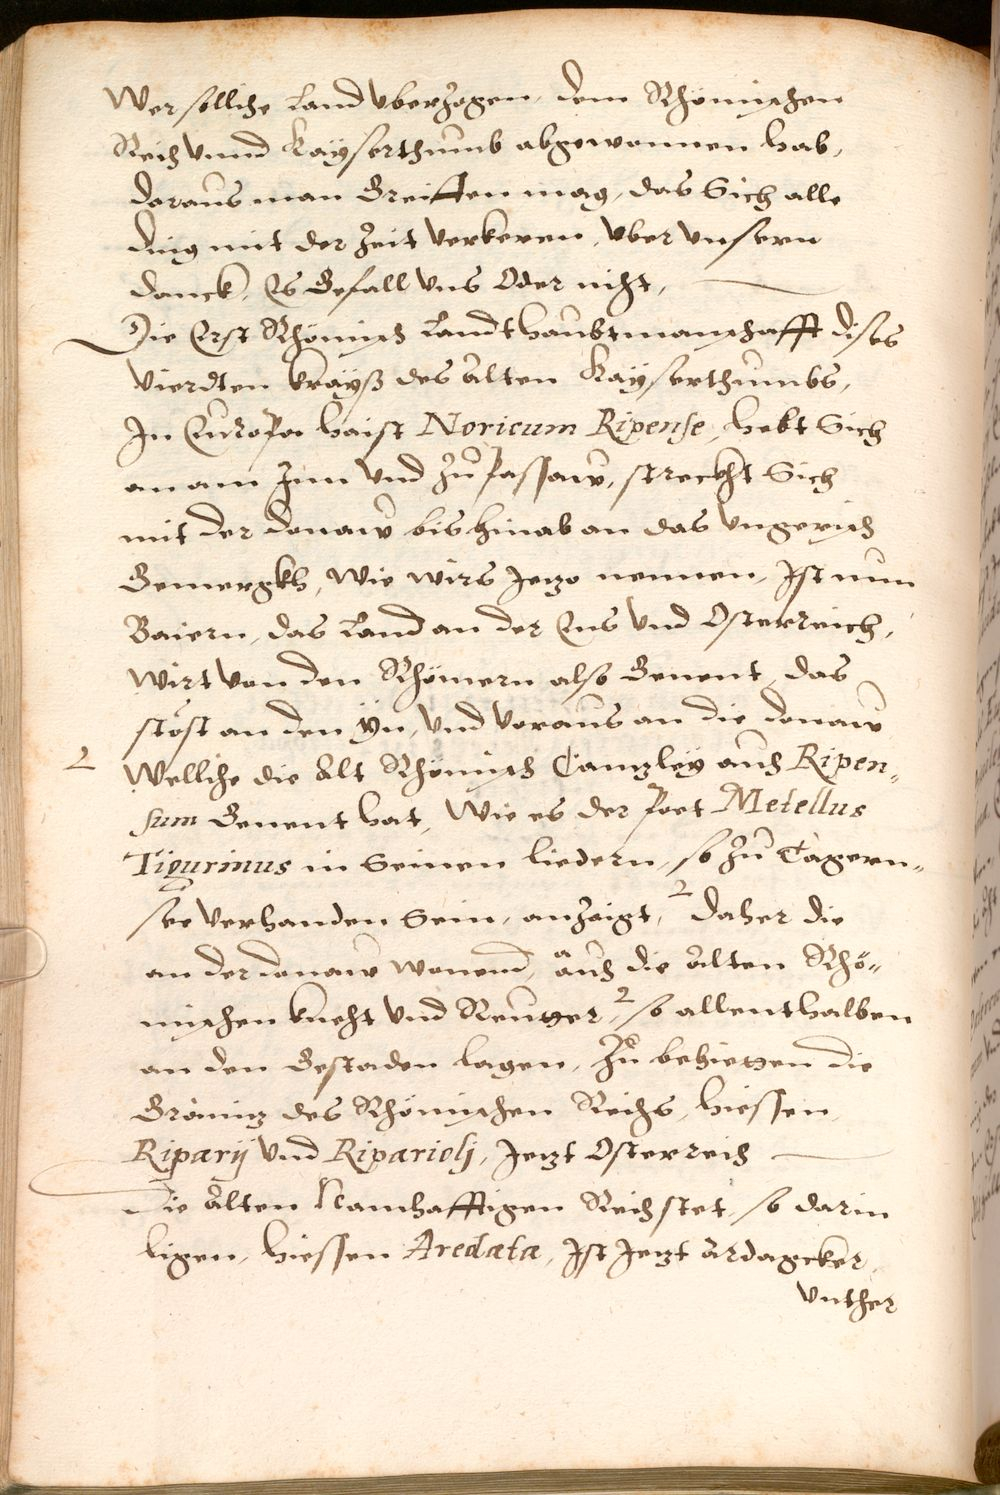 Wer solliche Land vberzogen, dem Rhömischen
Reich vnnd Kayserthumb abgewonnen hab,
daraus man Greiffen mag, das Sich alle
ding mit der Zeit verkeren, vber vnsern
danck, Es Gefall vns Oder nicht,
Die Erst Rhömisch Landthaubtmanschafft dises
vierdten krayß des Alten Kayserthumbs,
In Europa haist Noricum Ripense, hebt Sich
an am Inn vnd zu Passaw, streckht Sich
mit der donaw bis hinab an das vngerisch
Gemergkh, Wie wirs Jezo nennen, Ist nun
Baiern, das Land an der Ens vnd Osterreich,
Wirt von den Rhömern also Genent, das
stöst an den Yn, vnd voraus an die donaw
2 Welliche die Alt Rhömisch Canzley auch Ripen„
sum Genent hat, Wie es der Poet Metellus
Tigurinus in Seinen liedern, so zu Tägern„
see verhanden Sein, anzaigt, 2 daher die
an der donaw wonend, auch die Alten Rhö„
mischen knecht vnd Reutter, 2 so allenthalben
an den Gestaden lagen, Zu behietten die
Gräniz des Rhömischen Reichs, hiessen
Riparij vnd Ripariolj, Jetzt Osterreich
Die Alten Namhafftigen Reichstet, so darin
ligen, hiessen Aredata, Ist Jetzt Ardagcker,
vnther